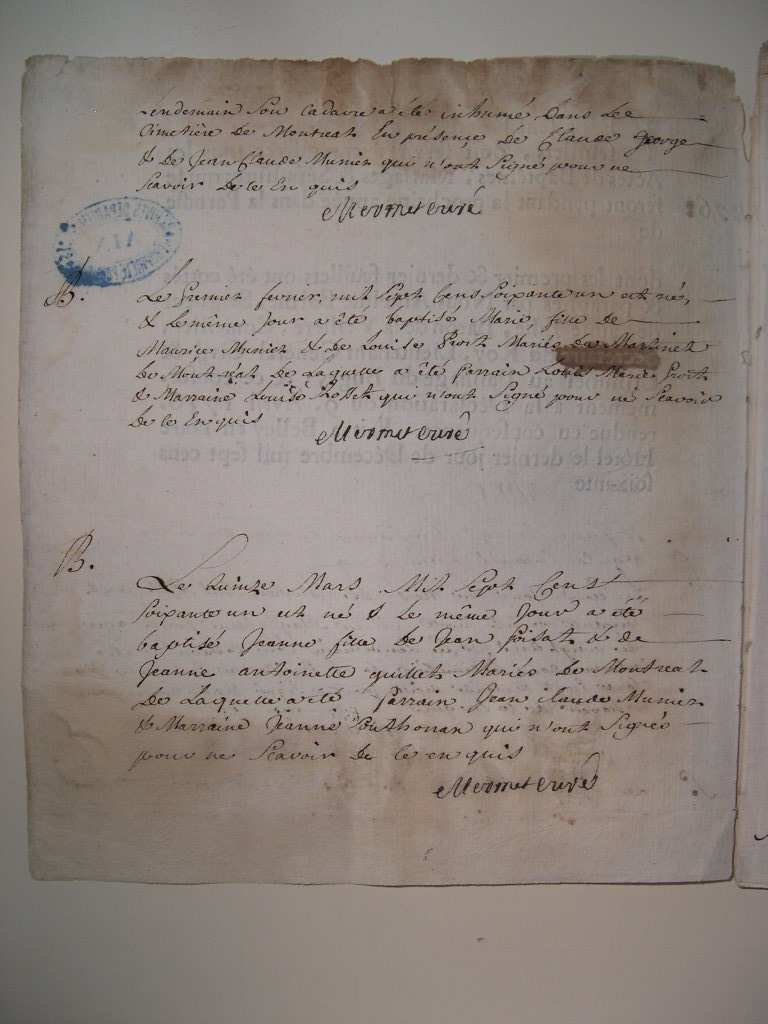 Lendemain son cadavre a été inhumé dans le
Cimetière de Montreal En présence de Claude George
& de Jean Claude Munier qui n'ont Signé pour ne
Scavoir de ce En quis
Mermet curé
B.
Le Premier fevrier mil Sept Cens Soixante un est né,
& le même Jour a été baptisé Marie, fille de
Maurice Munier & de Louise Mariés du Martinet
de Mont-réal de Laquelle a été Parrain Louis Marie
& Marraine Louise Rollet qui n'ont Signé pour ne Scavoir
de ce En quis
Mermet curé
B.
Le quinze Mars Mil Sept Cens
Soixante un est né & le même Jour a été
baptisé Jeanne fille de Jean & de
Jeanne antoinette quillet Mariés de Montreal
de Laquelle a été Parrain Jean claude Munier
& Marraine Jeanne qui n'ont Signés
pour ne Scavoir de ce en quis
Mermet curé